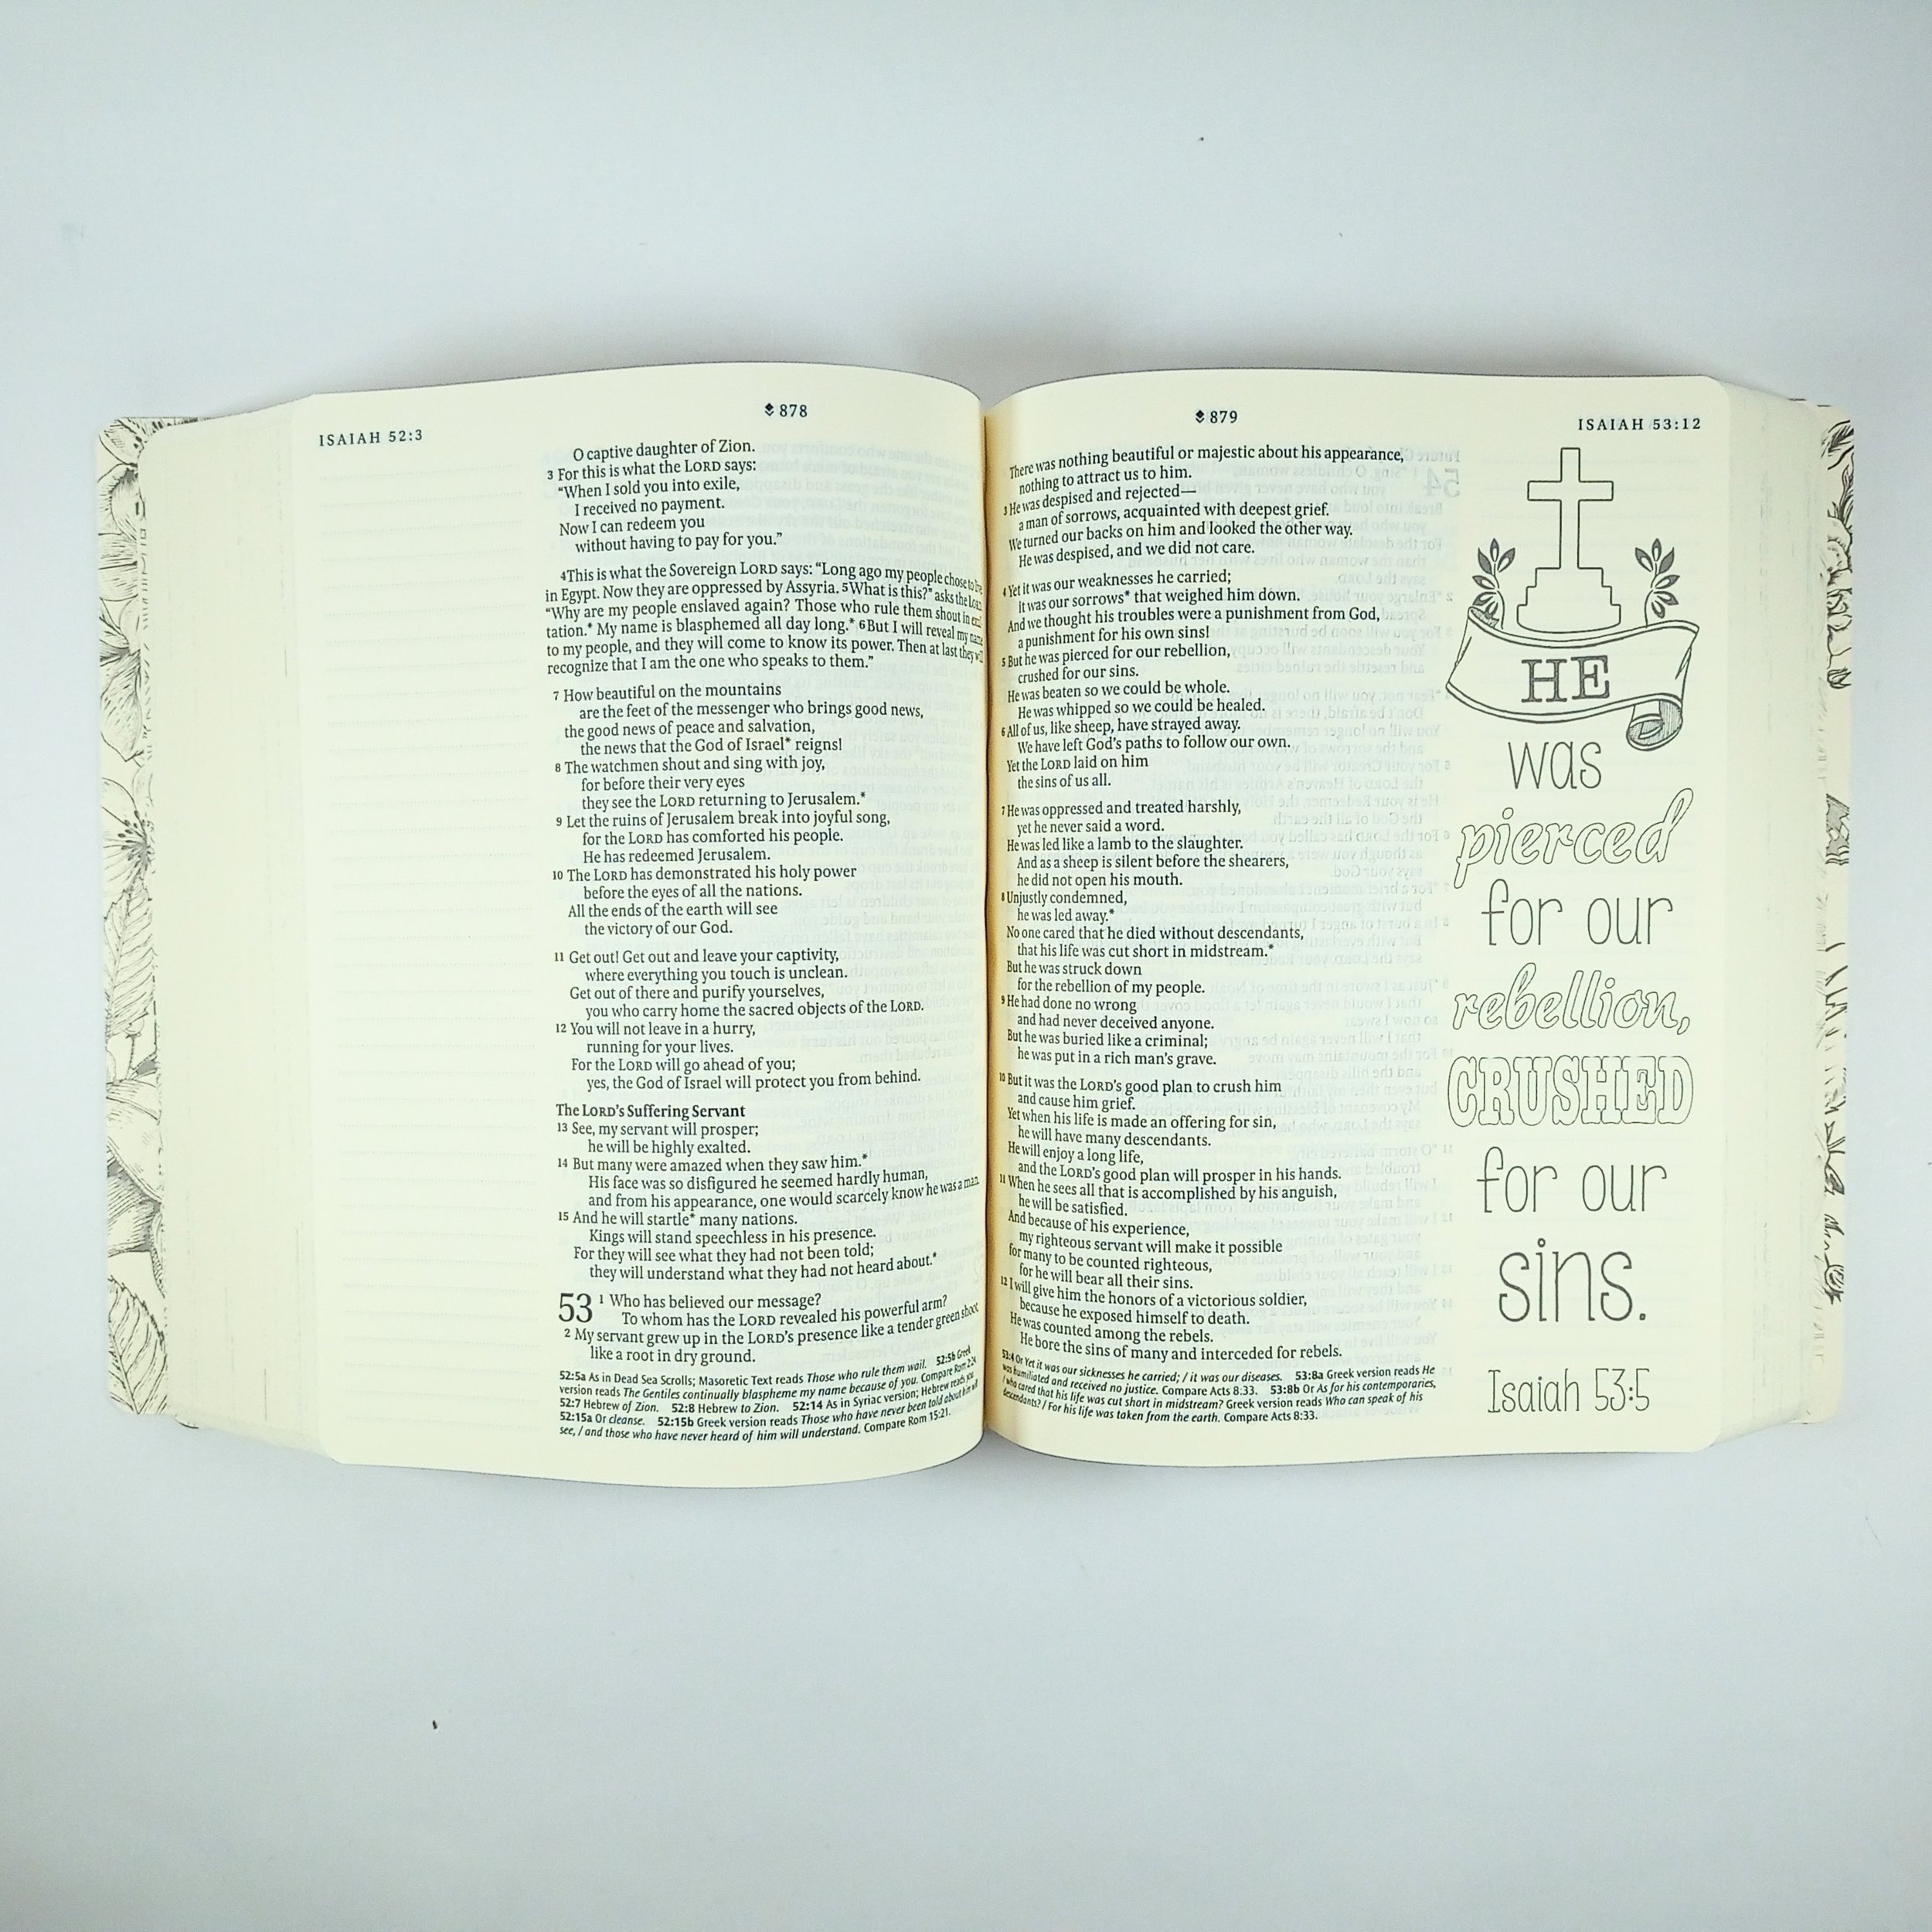 878
ISAIAH 52:3
O captive daughter of Zion.
3 For this is what the LORD says:
“When I sold you into exile,
I received no payment.
Now I can redeem you
without having to pay for you.”
4This is what the Sovereign LORD says: “Long ago my people chose to live
in Egypt. Now they are oppressed by Assyria. 5What is this?” asks the LORD.
“Why are my people enslaved again? Those who rule them shout in exul-
tation.* My name is blasphemed all day long.* 6But I will reveal my name
to my people, and they will come to know its power. Then at last they will
recognize that I am the one who speaks to them.”
7 How beautiful on the mountains
are the feet of the messenger who brings good news,
the good news of peace and salvation,
the news that the God of Israel* reigns!
8 The watchmen shout and sing with joy,
for before their very eyes
they see the LORD returning to Jerusalem.*
9 Let the ruins of Jerusalem break into joyful song,
for the LORD has comforted his people.
He has redeemed Jerusalem.
10 The LORD has demonstrated his holy power
before the eyes of all the nations.
All the ends of the earth will see
the victory of our God.
11 Get out! Get out and leave your captivity,
where everything you touch is unclean.
Get out of there and purify yourselves,
you who carry home the sacred objects of the LORD.
12 You will not leave in a hurry,
running for your lives.
For the LORD will go ahead of you;
yes, the God of Israel will protect you from behind.
The LORD’s Suffering Servant
13 See, my servant will prosper;
he will be highly exalted.
14 But many were amazed when they saw him.*
His face was so disfigured he seemed hardly human,
and from his appearance, one would scarcely know he was a man.
15 And he will startle* many nations.
Kings will stand speechless in his presence.
For they will see what they had not been told;
they will understand what they had not heard about.*
53 1 Who has believed our message?
To whom has the LORD revealed his powerful arm?
2 My servant grew up in the LORD’s presence like a tender green shoot,
like a root in dry ground.
52:5a As in Dead Sea Scrolls; Masoretic Text reads Those who rule them wail. 52:5b Greek
version reads The Gentiles continually blaspheme my name because of you. Compare Rom 2:24.
52:7 Hebrew of Zion. 52:8 Hebrew to Zion. 52:14 As in Syriac version; Hebrew reads you.
52:15a Or cleanse. 52:15b Greek version reads Those who have never been told about him will
see, / and those who have never heard of him will understand. Compare Rom 15:21.
879
ISAIAH 53:12
There was nothing beautiful or majestic about his appearance,
nothing to attract us to him.
3 He was despised and rejected—
a man of sorrows, acquainted with deepest grief.
We turned our backs on him and looked the other way.
He was despised, and we did not care.
4 Yet it was our weaknesses he carried;
it was our sorrows* that weighed him down.
And we thought his troubles were a punishment from God,
a punishment for his own sins!
5 But he was pierced for our rebellion,
crushed for our sins.
He was beaten so we could be whole.
He was whipped so we could be healed.
6 All of us, like sheep, have strayed away.
We have left God’s paths to follow our own.
Yet the LORD laid on him
the sins of us all.
7 He was oppressed and treated harshly,
yet he never said a word.
He was led like a lamb to the slaughter.
And as a sheep is silent before the shearers,
he did not open his mouth.
8 Unjustly condemned,
he was led away.*
No one cared that he died without descendants,
that his life was cut short in midstream.*
But he was struck down
for the rebellion of my people.
9 He had done no wrong
and had never deceived anyone.
But he was buried like a criminal;
he was put in a rich man’s grave.
10 But it was the LORD’s good plan to crush him
and cause him grief.
Yet when his life is made an offering for sin,
he will have many descendants.
He will enjoy a long life,
and the LORD’s good plan will prosper in his hands.
11 When he sees all that is accomplished by his anguish,
he will be satisfied.
And because of his experience,
my righteous servant will make it possible
for many to be counted righteous,
for he will bear all their sins.
12 I will give him the honors of a victorious soldier,
because he exposed himself to death.
He was counted among the rebels.
He bore the sins of many and interceded for rebels.
53:4 Or Yet it was our sicknesses he carried; / it was our diseases. 53:8a Greek version reads He
was humiliated and received no justice. Compare Acts 8:33. 53:8b Or As for his contemporaries,
/ who cared that his life was cut short in midstream? Greek version reads Who can speak of his
descendants? / For his life was taken from the earth. Compare Acts 8:33.
HE
was
pierced
for our
rebellion,
CRUSHED
for our
sins.
Isaiah 53:5